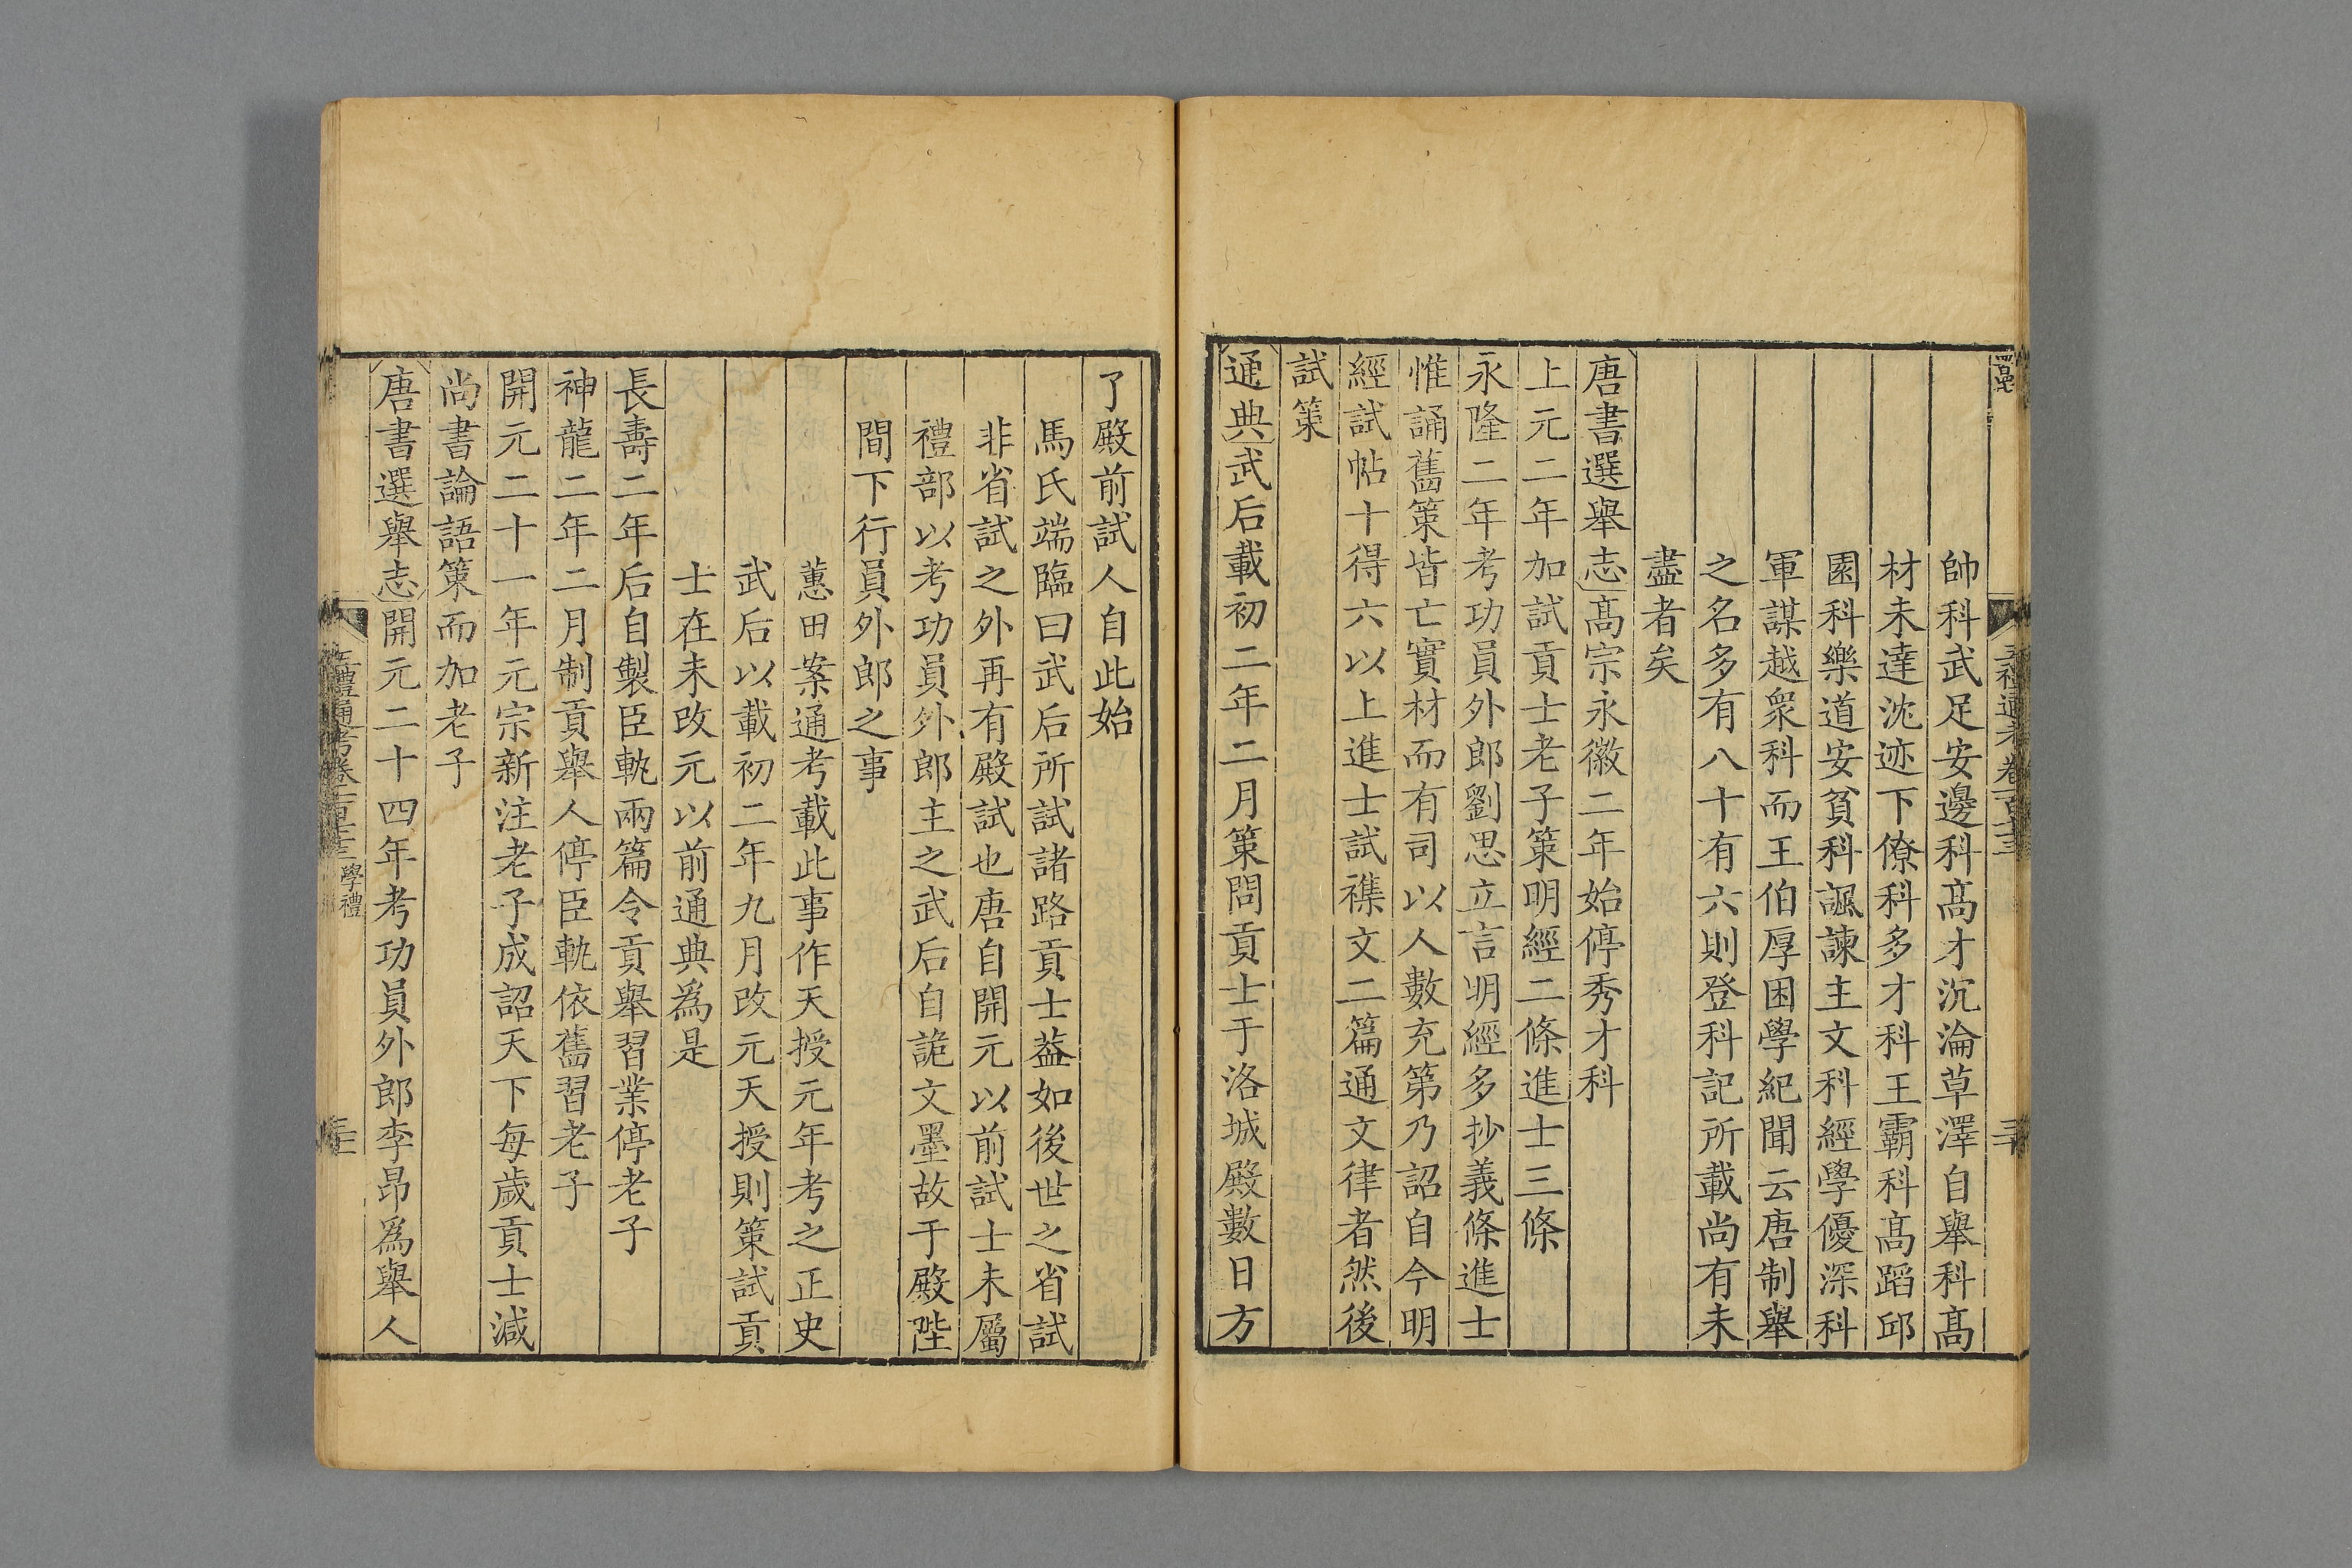 帥科武足安邊科髙才沉淪草澤自舉科髙
材未達沈迹下僚科多才科王霸科髙蹈邱
園科樂道安貧科諷諫主文科經學優深科
軍謀越衆科而王伯厚困學紀聞云唐制舉
之名多有八十有六則登科記所載尚有未
盡者矣
唐書選舉志髙宗永徽二年始停秀才科
上元二年加試貢士老子策明經二條進士三條
永隆二年考功員外郎劉思立言明經多抄義條進士
惟誦舊策皆亡實材而有司以人數充第乃詔自今明
經試帖十得六以上進士試襍文二篇通文律者然後
試策
通典武后載初二年二月策問貢士于洛城殿數日方
了殿前試人自此始
馬氏端臨曰武后所試諸路貢士葢如後世之省試
非省試之外再有殿試也唐自開元以前試士未屬
禮部以考功員外郎主之武后自詭文墨故于殿陛
間下行員外郎之事
蕙田案通考載此事作天授元年考之正史
武后以載初二年九月改元天授則策試貢
士在未改元以前通典為是
長壽二年后自製臣軌兩篇令貢舉習業停老子
神龍二年二月制貢舉人停臣軌依舊習老子
開元二十一年元宗新注老子成詔天下每歲貢士減
尚書論語策而加老子
唐書選舉志開元二十四年考功員外郎李昂為舉人
五禮通考卷一百七十三 學禮